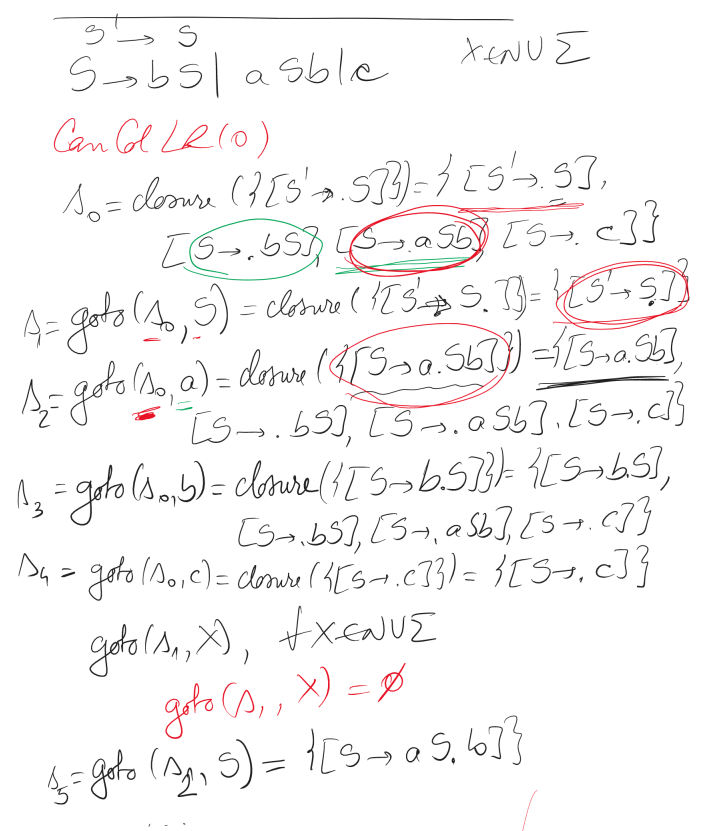 S' → S
S → bS | aSb | c
X ∈ N ∪ Σ
Can Col LR(0)
s₀ = closure ({[S' → .S]}) = {[S' → .S],
[S → .bS], [S → .aSb], [S → .c]}
s₁ = goto(s₀, S) = closure({[S' → S.]}) = {[S' → S.]}
s₂ = goto(s₀, a) = closure({[S → a.Sb]}) = {[S → a.Sb],
[S → .bS], [S → .aSb], [S → .c]}
s₃ = goto(s₀, b) = closure({[S → b.S]}) = {[S → b.S],
[S → .bS], [S → .aSb], [S → .c]}
s₄ = goto(s₀, c) = closure({[S → .c]}) = {[S → .c]}
goto(s₁, X), ∀X ∈ N ∪ Σ
goto(s₁, X) = ∅
s₅ = goto(s₂, S) = {[S → aS.b]}